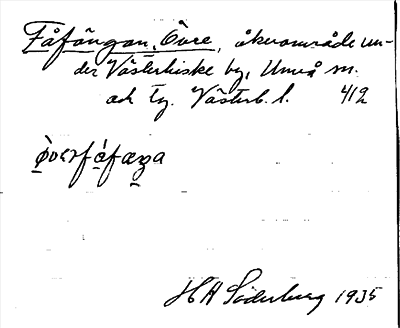 Fåfängan, Övre, åkerområde un-
der Västerhiske by, Umeå sn.
och tg. Västerb. l. 412
H A Söderberg 1935